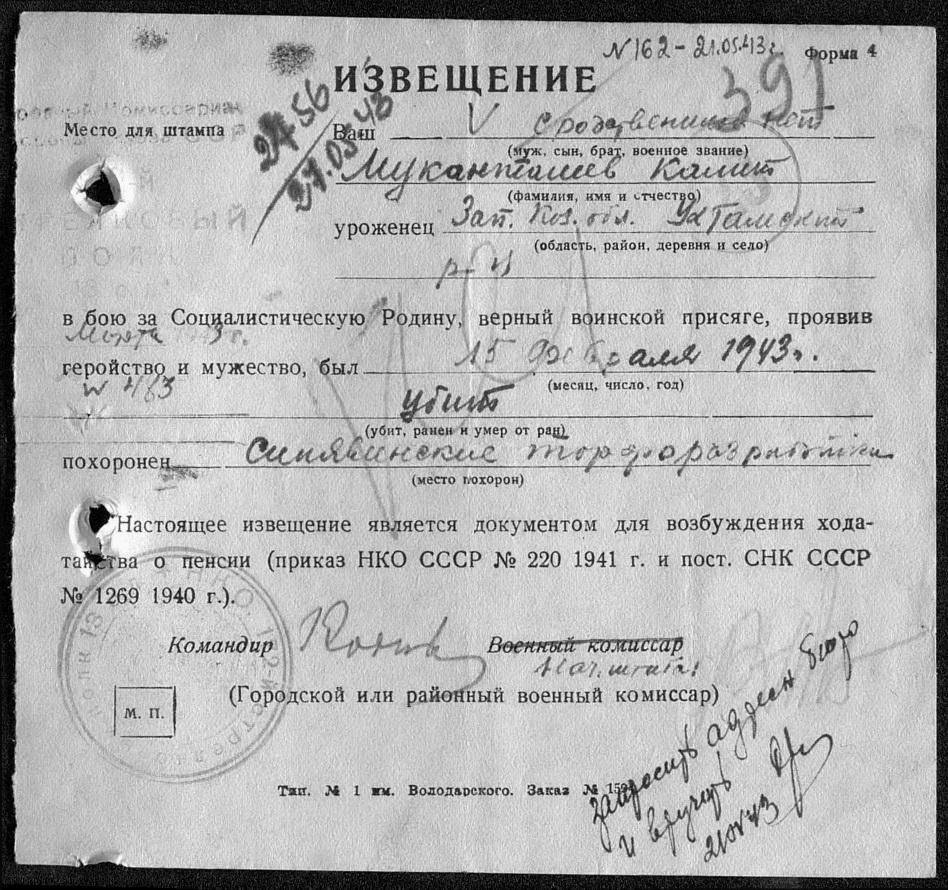 N162 - 21.05.43г. Форма 4
ИЗВЕЩЕНИЕ
391
2756
27.05.43
Место для штампа
Ваш V сродственников нет
(муж, сын, брат, военное звание)
Муканташев Камит
(фамилия, имя и отчество)
уроженец Зап. Каз. обл.
(область, район, деревня и село)
р-н
в бою за Социалистическую Родину, верный воинской присяге, проявив
Марта 43г.
геройство и мужество, был 15 февраля 1943г.
(месяц, число, год)
N 463
убит
(убит, ранен и умер от ран)
похоронен Синявинские торфоразработки
(место похорон)
Настоящее извещение является документом для возбуждения хода-
тайства о пенсии (приказ НКО СССР № 220 1941 г. и пост. СНК СССР
№ 1269 1940 г.).
Командир Военный комиссар
Нач. штаба:
(Городской или районный военный комиссар)
М. П.
запросить адресн бюро
и вручить
Тип. № 1 им. Володарского. Заказ №